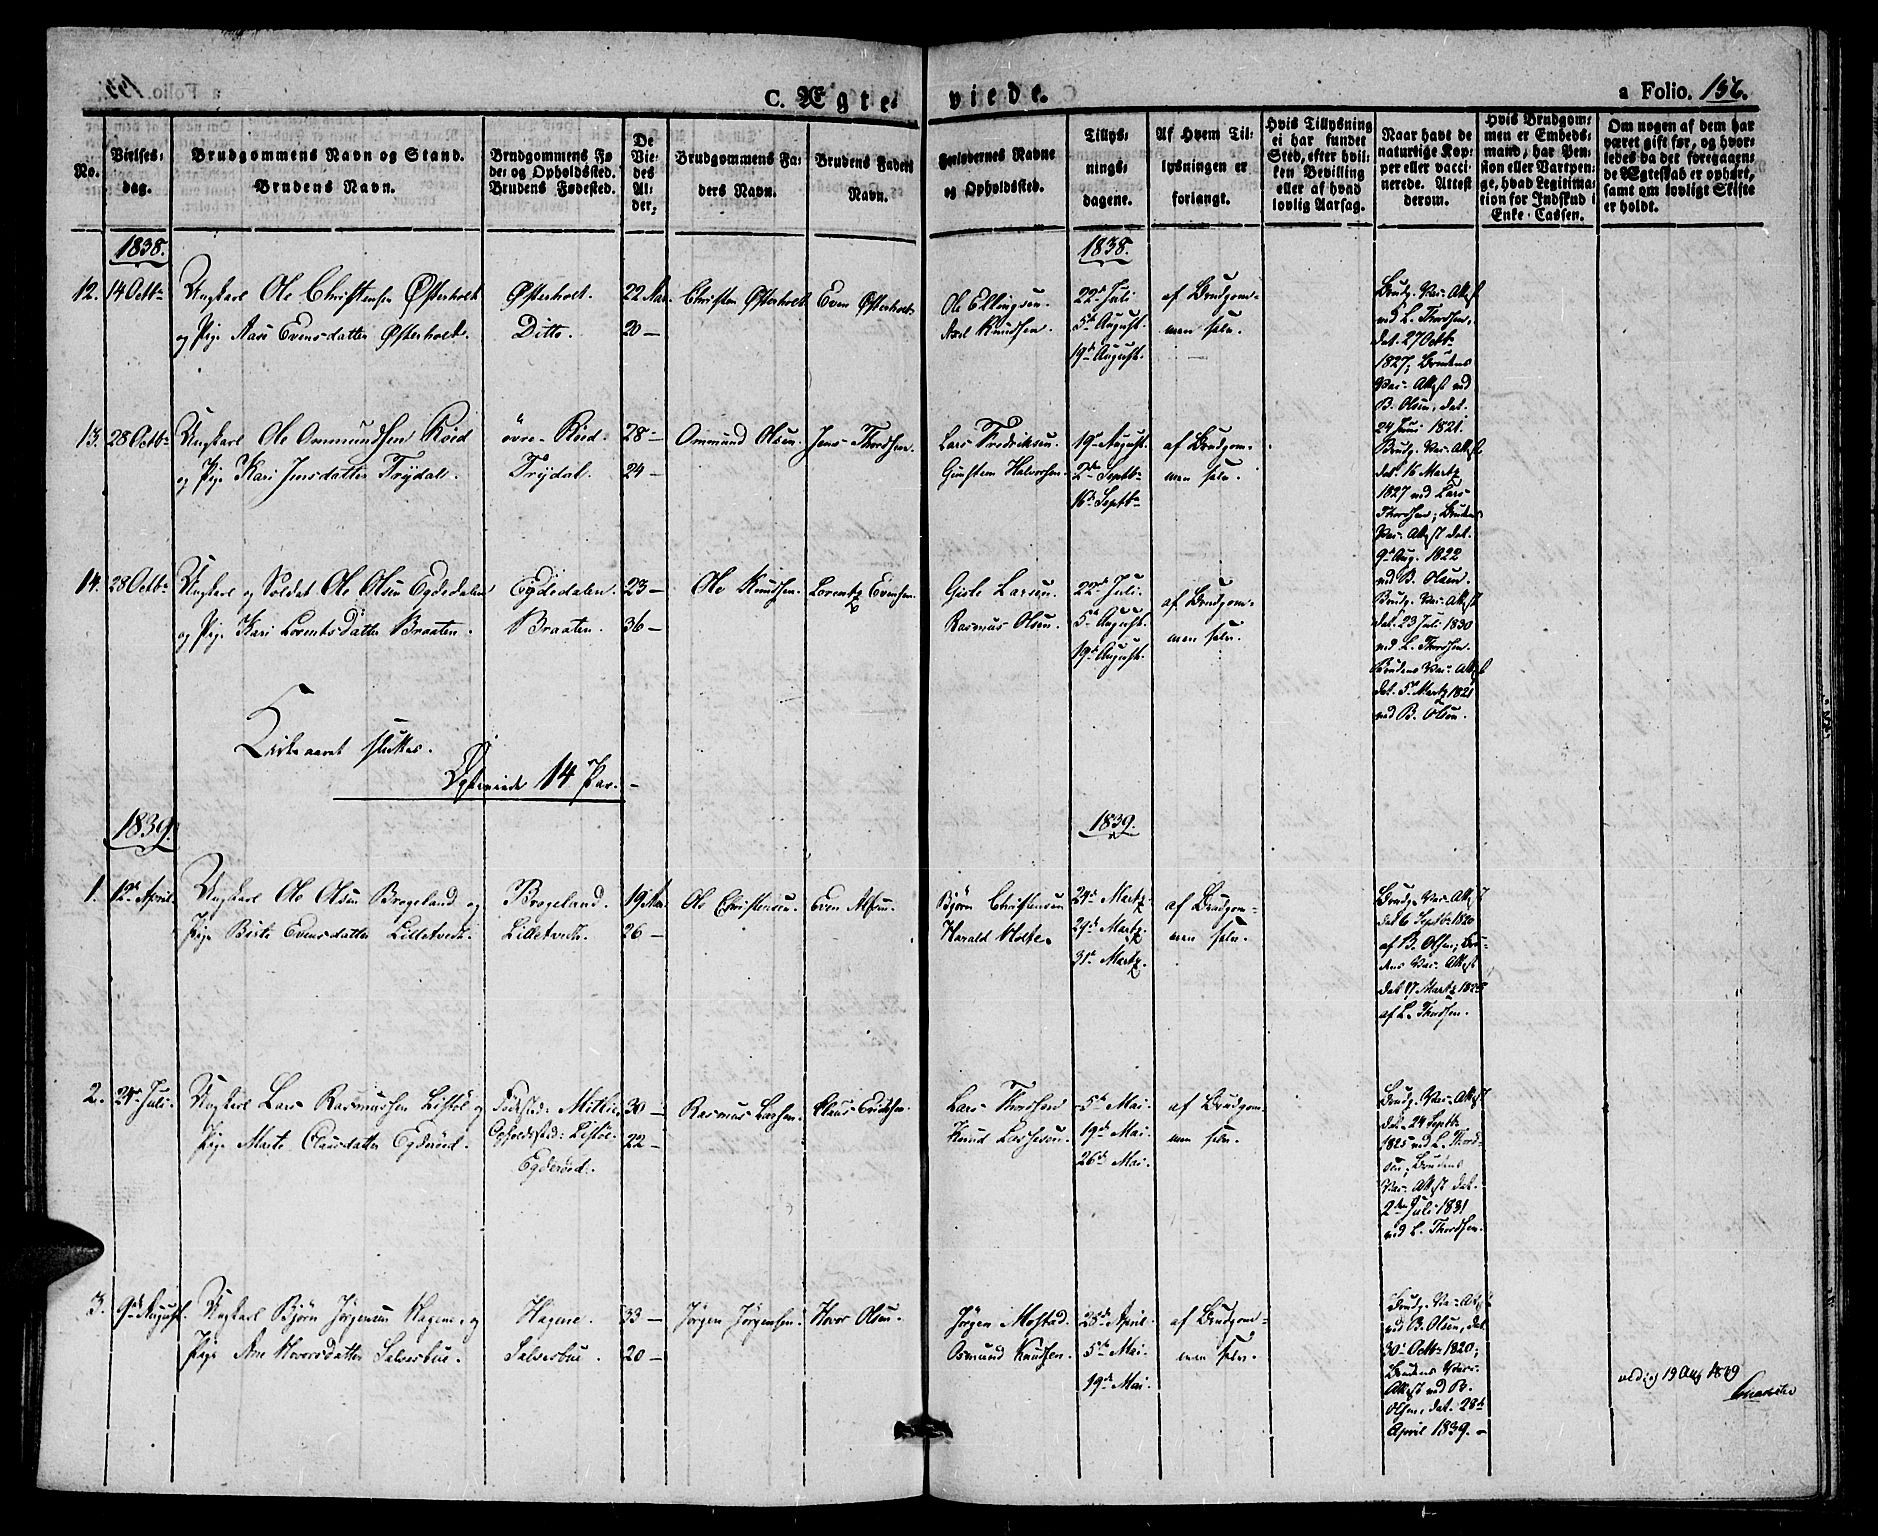 C. Ægte-
viede.
a Folio. 156.
No.
Vielses-
dag.
Brudgommens Navn og Stand.
Brudens Navn.
Brudgommens Fø-
de- og Opholdssted.
Brudens Fødested.
De
Vie-
des
Al-
der.
Brudgommens Fa-
ders Navn.
Brudens Faders
Navn.
Forlovernes Navne
og Opholdssted.
Tillys-
nings-
dagene.
Af Hvem Til-
lysningen er
forlangt.
Hvis Tillysning
ei har fundet
Sted, efter hvil-
ken Bevilling
eller af hvad
lovlig Aarsag.
Naar havt de
naturlige Kop-
per eller vacci-
nerede. Attest
derom.
Hvis Brudgom-
men er Embeds-
mand, har Pen-
sion eller Vartpen-
ge, hvad Legitima-
tion for Indskud i
Enke-Cassen.
Om nogen af dem har
været gift før, og hvor-
ledes da det foregaaen-
de Ægteskab er ophørt,
samt om lovligt Skifte
er holdt.
1838.
1838.
12. 14 Octb
Ungkarl Ole Christensen Østerholt
og Pige Aase Evensdatter Østerholt.
Østerholt.
Ditto.
22 Aar.
20 –
Christen Østerholt
Even Østerholt
Ole Ellingsen.
Axel Knudsen.
22de Juli
5te August.
19de August.
af Brudgom-
men selv.
Brudg. Vac. Attest
ved L. Thordsen,
dat. 27 Octb
1827; Brudens
Vac. Attest ved
B. Olsen, dat.
24 Juni 1821.
13. 28 Octb
Ungkarl Ole Ommundsen Röed
og Pige Kari Jensdatter Trydal.
övre Röed.
Trydal.
28 –
24 –
Ommund Olsen.
Jens Thordsen.
Lars Fredriksen.
Gunsten Halvorsen.
19de August.
2de Septb
16de Septb
af Brudgom-
men selv.
Brudg. Vac. Attest
dat. 16 Martz
1827 ved Lars
Thordsen; Brudens
Vac. Attest dat.
9de Aug. 1822
ved B. Olsen.
14. 28 Octb
Ungkarl og Soldat Ole Olsen Egdedalen
og Pige Kari Lorentsdatter Braaten.
Egdedalen.
Braaten.
23 –
36 –
Ole Knudsen.
Lorentz Evensen.
Gisle Larsen.
Rasmus Olsen.
22de Juli.
5te August.
19de August.
af Brudgom-
men selv.
Brudg. Vac. Attest
dat. 23 Juli 1830
ved L. Thordsen.
Brudens Vac. Attest
dat. 5te Martz 1821
ved B. Olsen.
Kirkeaaret sluttes.
Ægteviede 14 Par. –
1839.
1839.
1. 12te April.
Ungkarl Ole Olsen Brogeland og
Pige Berte Evensdatter Lilletvedt.
Brogeland.
Lilletvedt.
19 Aar.
26 –
Ole Christensen.
Even Alfsen.
Björn Christensen
Harald Holte.
24de Martz
29de Martz.
31te Martz.
af Brudgom-
men selv.
Brudg. Vac. Attest
dat. 6 Septb 1820
af B. Olsen; Bru-
dens Vac. Attest
dat. 17 Martz 1825
af L. Thordsen.
2. Juli.
Ungkarl Lars Rasmussen Lislöe og
Pige Marte Clausdatter Egderöed.
Födested:
Opholdssted: Lislöe.
Egderöed.
30 –
22 –
Rasmus Larsen.
Claus Eriksen.
Lars Thordsen
Knud Larsen.
5te Mai.
19de Mai.
26de Mai.
af Brudgom-
men selv.
Brudg. Vac. Attest
dat. 24 Septb
1825 ved L. Thord-
sen; Brudens
Vac. Attest dat.
2den Juli 1831
ved L. Thordsen.
3. 9de August.
Ungkarl Björn Jörgensen Hagene, og
Pige Ane Hovorsdatter Salvesbue.
Hagene.
Salvesbue.
33 –
20 –
Jörgen Jörgensen.
Hovor Olsen.
Jörgen Mostad.
Osmund Knudsen.
28de April.
5te Mai.
19de Mai.
af Brudgom-
men selv.
Brudg. Vac. Attest
ved B. Olsen, dat.
30 Octb 1820;
Brudens Vac.
Attest ved B.
Olsen, dat. 28de
April 1839. –
19 Aug 1839